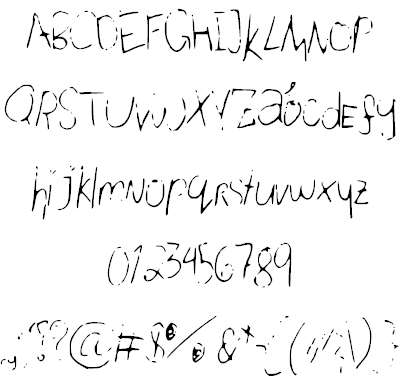 ABCDEFGHIJKLMNOP
QRSTUVWXYZabcdefg
hijklmnopqrstuvwxyz
0123456789
?@#$%&*()